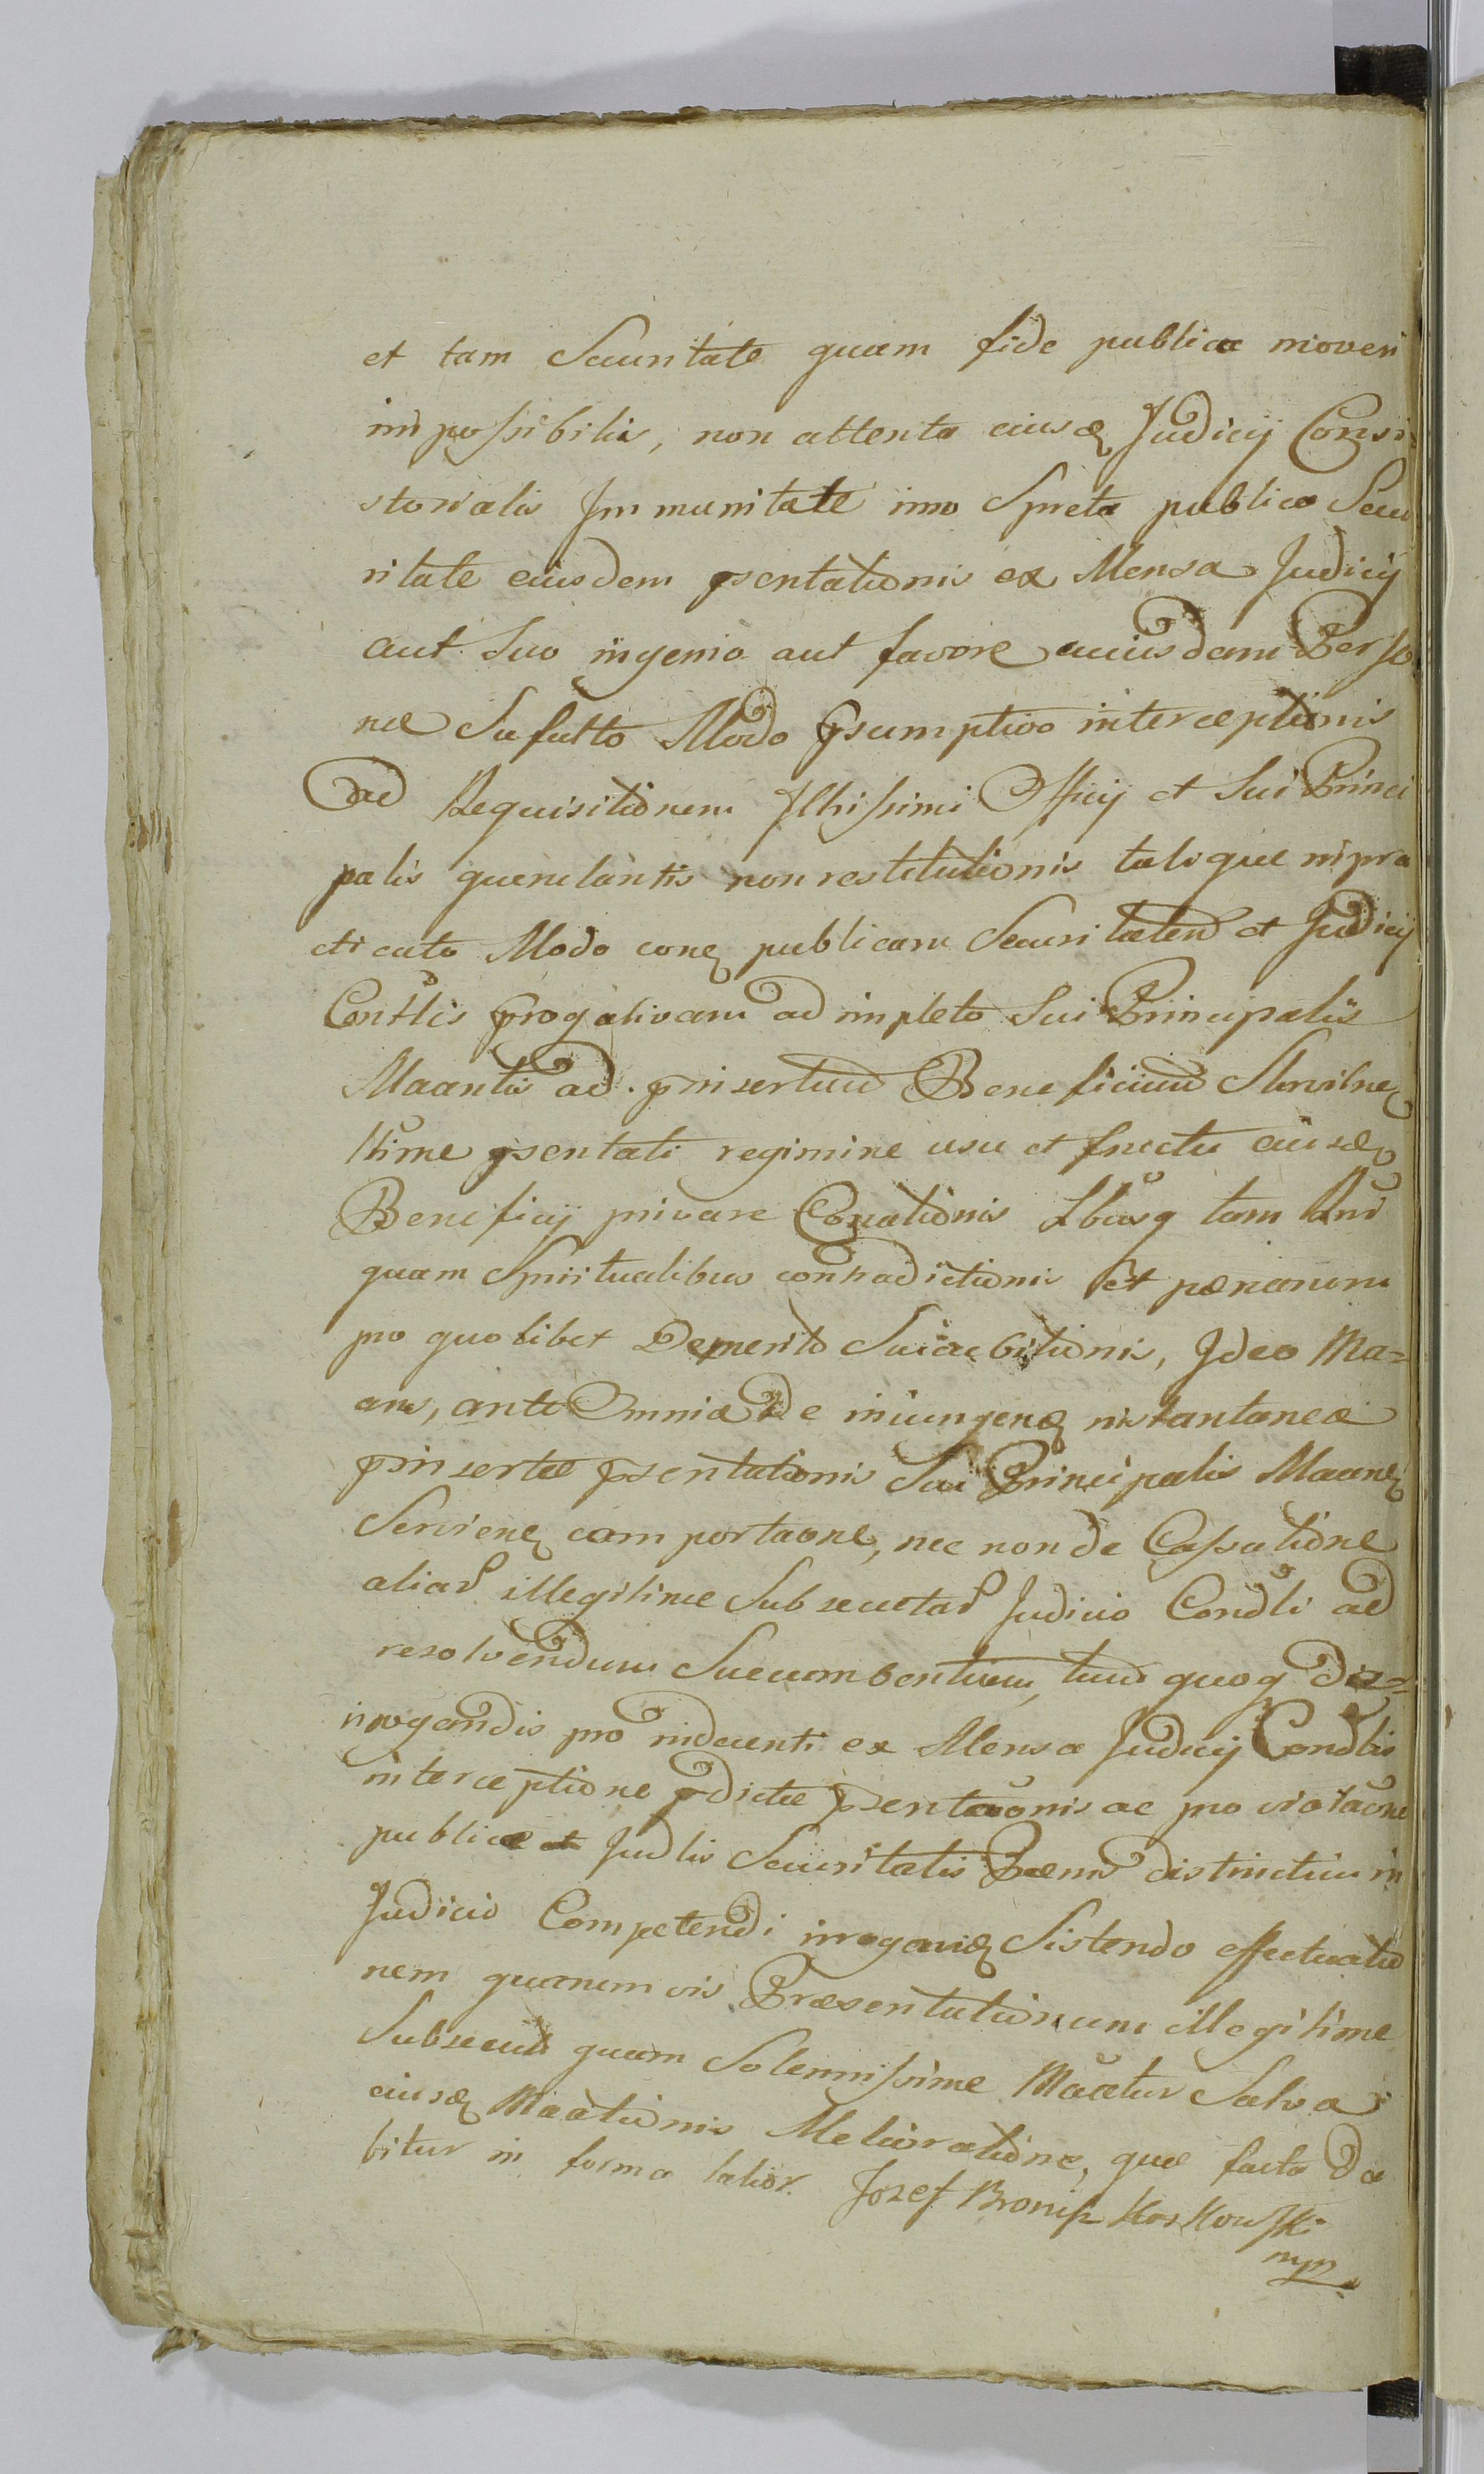 et tam Securitate quam fide publica moveri
impossibilis, non attenta eiusd Judicij Consi
storialis Immunitate imo Spreta publica Secu
ritate eiusdem psentationis ex Mensa Judicij
aut Suo ingenio aut favore cuiusdam Perso
næ Sufulto Modo psumptivo interceptionis
ad Requisitionem Illrissimi Officij et Sui Princi
palis querulantis non restitutionis talique inpra
cticato Modo conq publicam Securitatem et Judicij
Constlis progativam ad impleto Sui Principalis
Maantis ad pinsertum Beneficium
ltime psentati regimine usu et fructu eiusd
Beneficij privare Conationis Lbusq tam
quam Spiritualibus contradictionis et pænarum
pro quolibet Demerito Succubitionis, Ideo Ma=
ans, ante Omnia De iniungend instantanea
pinsertæ psentationis Sui Principalis Maanq
Servienq comportaone, nec non de Cassatione
aliar illegitime Subsecutar Judicio Condli ad
resolvendum Succumbentium, tum quoq
irrogandis pro indecenti ex Mensa Judicij Condlis
interceptione pdictæ psentaonis ac pro violaone
publicæ et Judlis Securitatis Pænis distinctim in
Judicio Competendi irrogand Sistendo effectuatio
nem quarumvis Præsentationum illegitime
Subsecut quam Solennissime Maatur Salva
eiusd Maationis Melioratione, quæ facta Da
bitur in forma latior. Jozef Bronisz
mpp